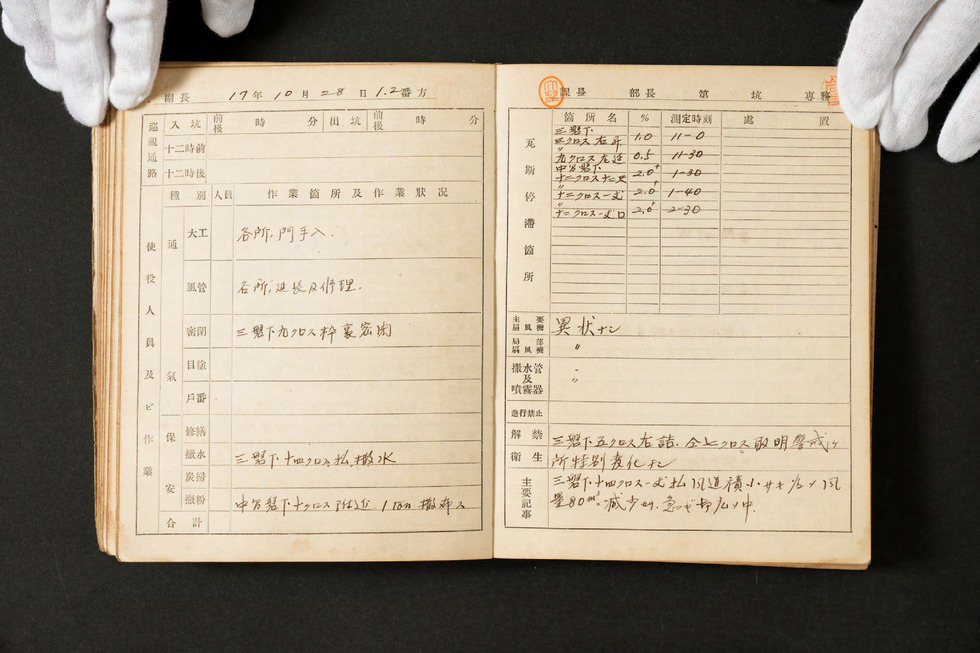 副長 17年10月28日1.2番方
巡視通路 入坑 前後 時 分 出坑 前後 時 分
十二時前
十二時後
種別 人員 作業箇所及作業狀況
使役人員及ビ作業
通氣
大工 各所、門手入.
風管 各所、延長及修理.
密閉 三盤下九クロス枠裏密閉
目塗
戶番
保安
修繕
撒水 三盤下十四クロス払撒水
炭掃
撒粉 中央盤下十クロス附近 1 ton 撒布ス
合計
課長 部長 第 坑 専務
瓦斯停滯箇所
箇所名 % 測定時刻 處置
三盤下
クロス右昇 1.0 11-0
〃
九クロス左延 0.5 11-30
中央盤下
十二クロス十二 2.0 1-30
〃
十二クロス一丈 2.0 1-40
〃
十二クロス一丈口 2.0 2-30
主要扇風機 異狀ナシ
局部扇風機 〃
撒水管及噴霧器 〃
進行禁止
解禁 三盤下五クロス右詰. 仝七クロス取明警戒ヶ
衛生 所特別変化ナシ
主要記事 三盤下十四クロス一丈払風道積小サキ為メ風
量80m³減少セリ. 急ギ切広メ中.